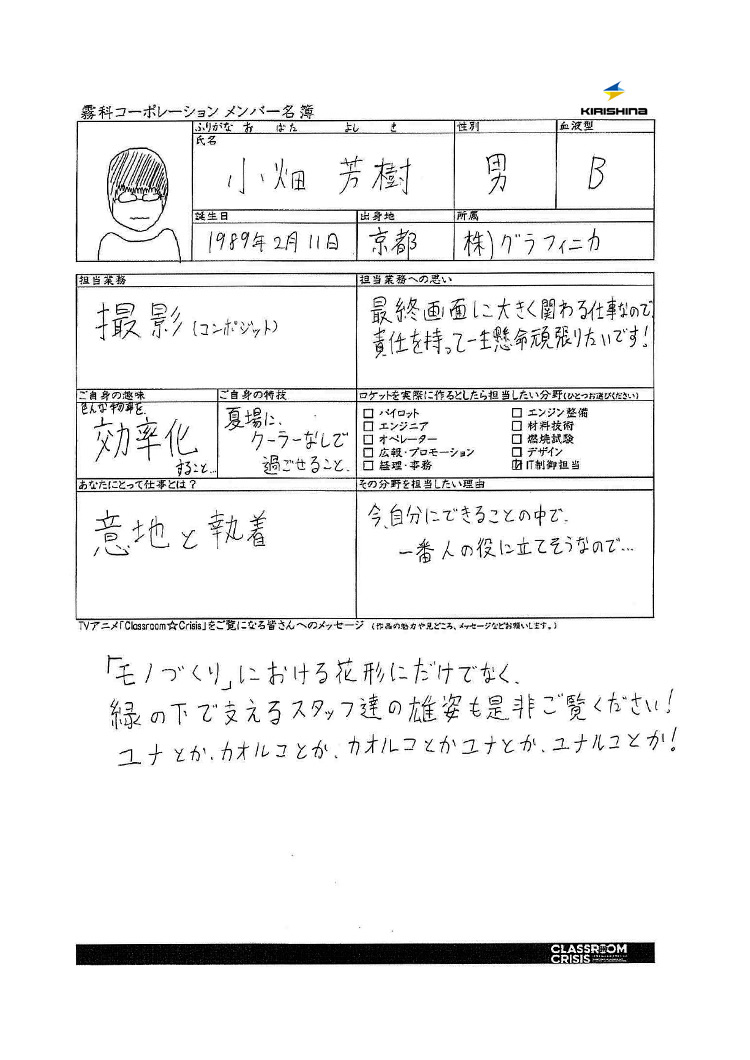 霧科コーポレーション メンバー名簿
KIRISHINA
ふりがな お ばた よし き
性別
血液型
氏名
小畑 芳樹
男
B
誕生日
出身地
所属
1989年2月11日
京都
株)グラフィニカ
担当業務
担当業務への思い
撮影(コンポジット)
最終画面に大きく関わる仕事なので、
責任を持って一生懸命頑張りたいです!
ご自身の趣味
ご自身の特技
ロケットを実際に作るとしたら担当したい分野(ひとつお選びください)
色んな物事を
効率化
すること…
夏場に、
クーラーなしで
過ごせること、
□ パイロット
□ エンジニア
□ オペレーター
□ 広報・プロモーション
□ 経理・事務
□ エンジン整備
□ 材料技術
□ 燃焼試験
□ デザイン
☑ IT制御担当
あなたにとって仕事とは?
その分野を担当したい理由
意地と執着
今、自分にできることの中で、
一番人の役に立てそうなので…
TVアニメ「Classroom☆Crisis」をご覧になる皆さんへのメッセージ (作品の魅力や見どころ、メッセージなどお願いします。)
「モノづくり」における花形にだけでなく、
縁の下で支えるスタッフ達の雄姿も是非ご覧ください!
ユナとか、カオルコとか、カオルコとかユナとか、ユナルコとか!
CLASSROOM
CRISIS